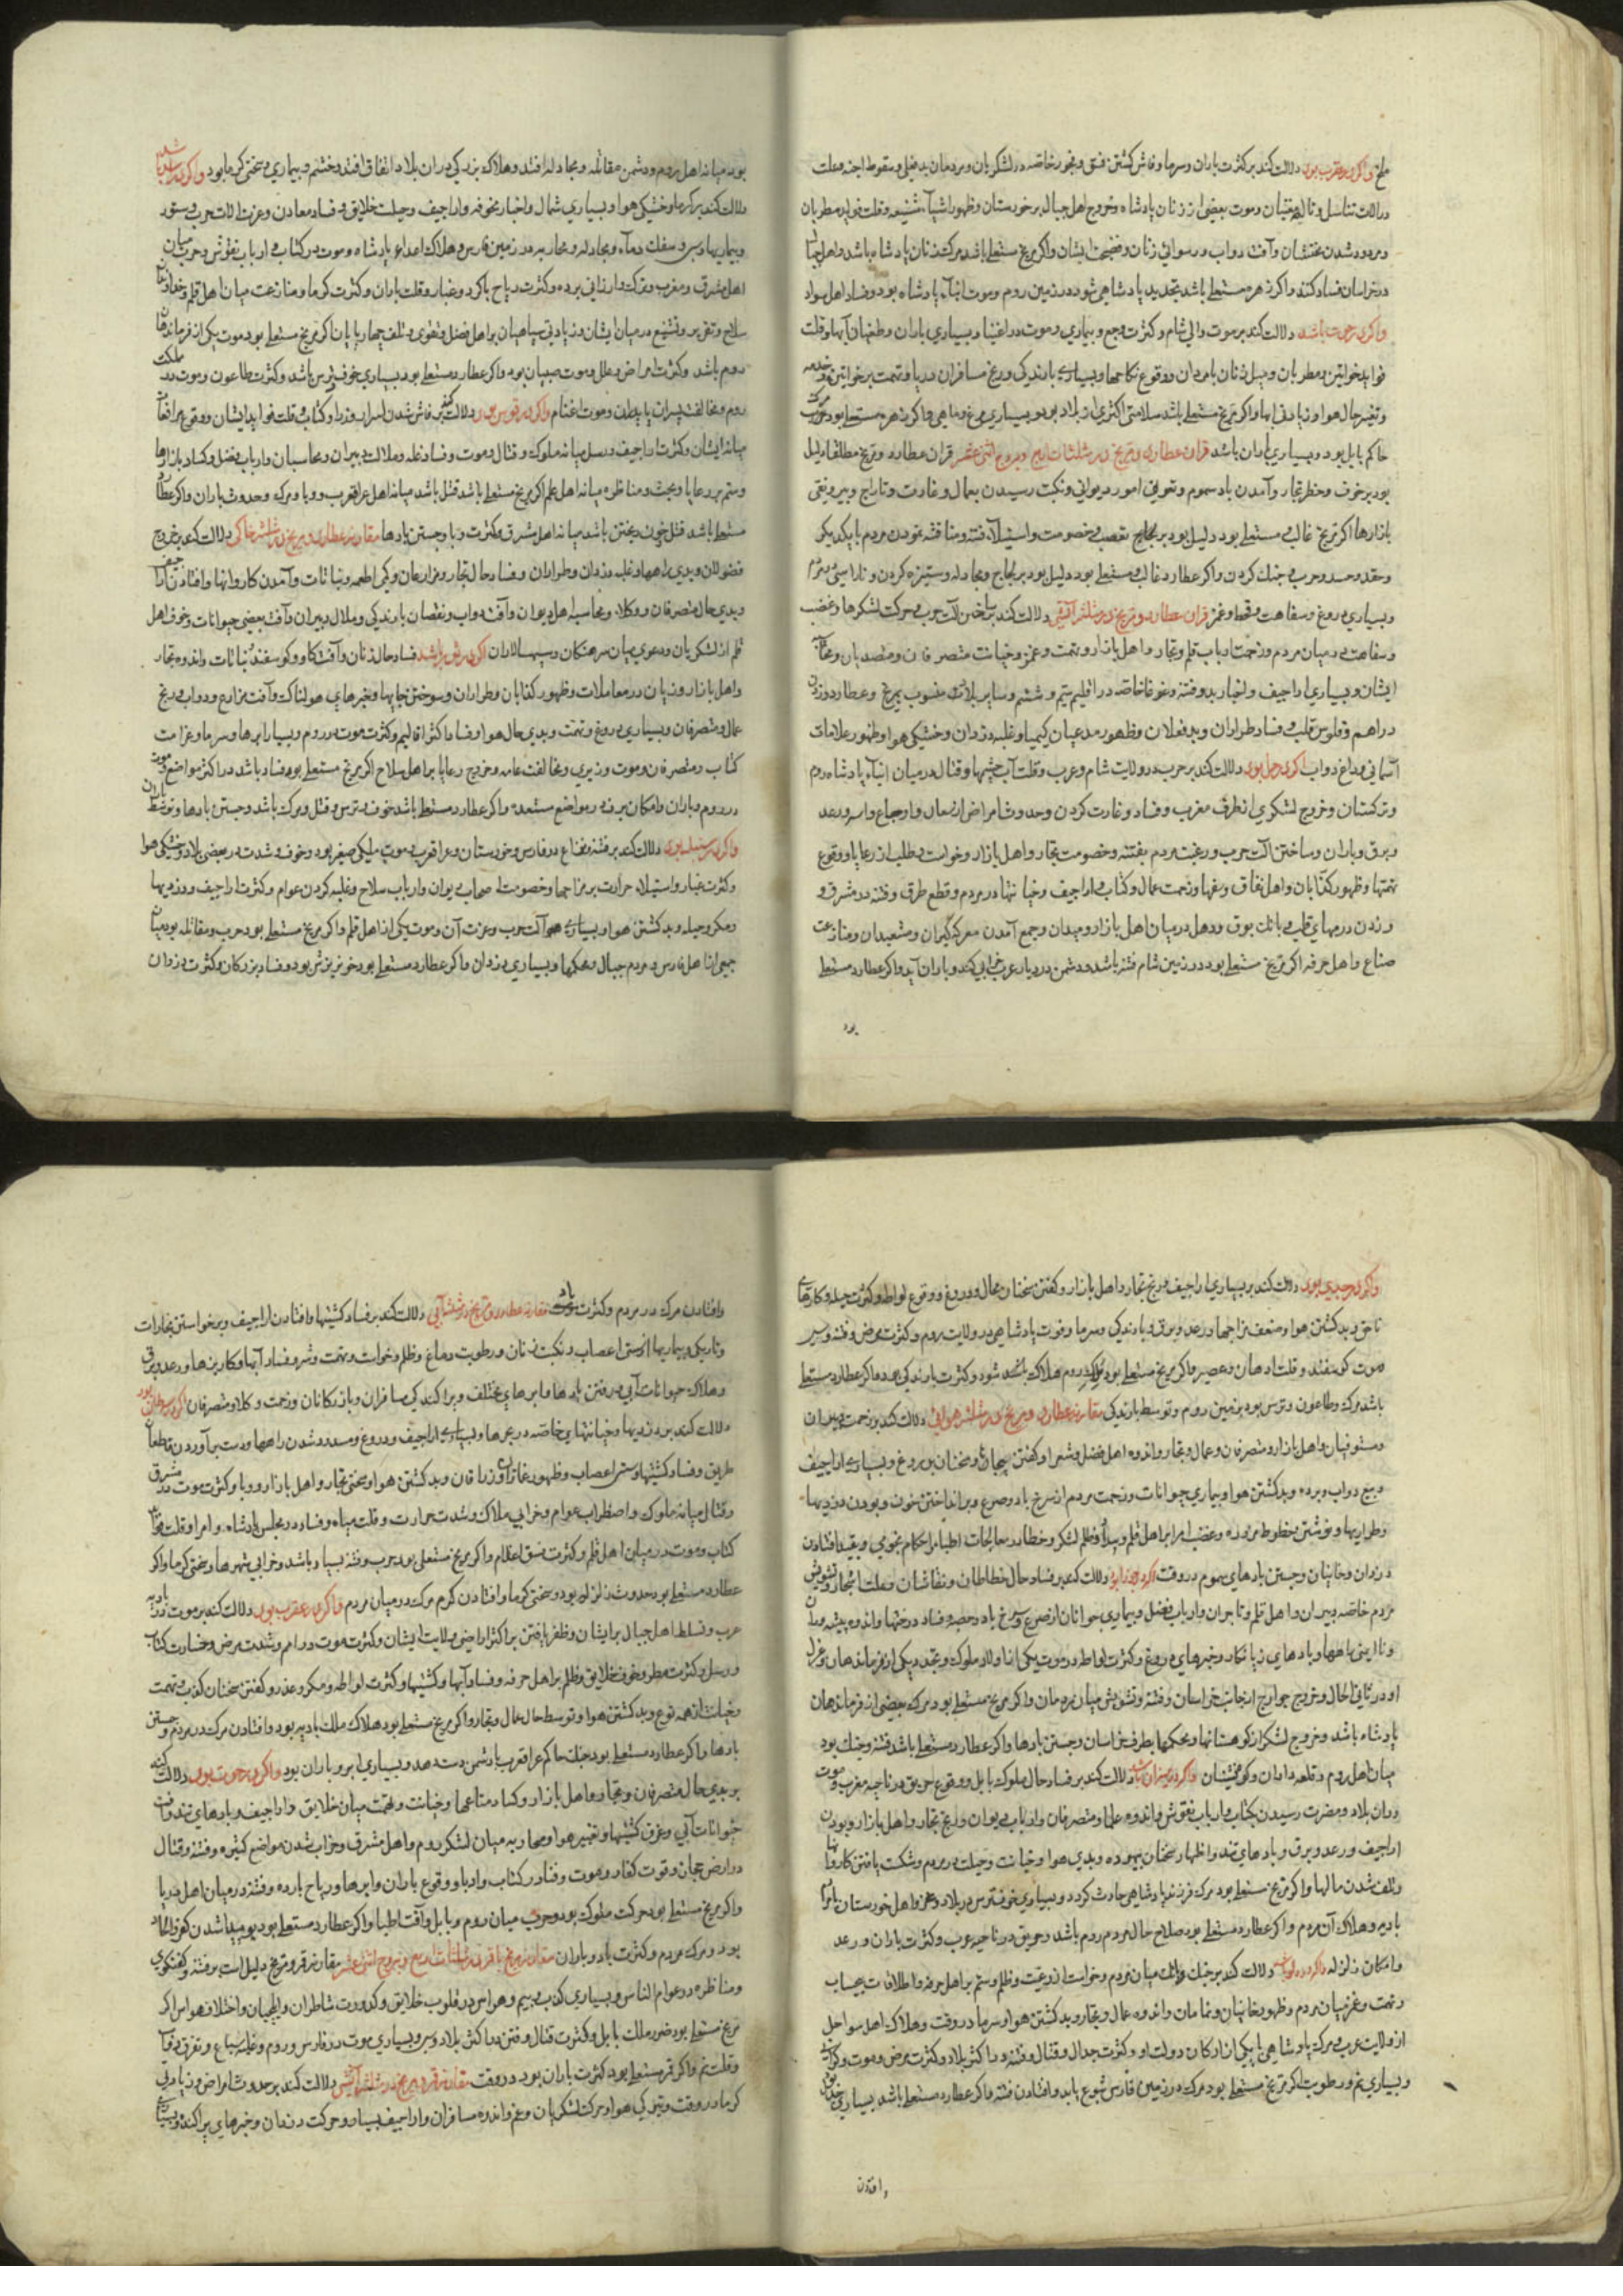 ملخ واگر در عقرب بود دلالت کند بر کثرت باران و سرما و فاش گشتن فسق و فجور خاصه در لشکریان و مردمان بدفعلی و سقوط اجنه و علت
در آلات تناسل و بعضی از زنان پادشاه و خروج اهل جبال بر خوزستان و ظهور اشیآء شنیعه و قلت فواید مطربان
و مردود شدن مخنثان و آفت دواب و رسوائی زنان و فضیحت ایشان واگر مریخ مستعلی باشد مرگ زنان پادشاه باشد و اهل
در خراسان فساد کنند واگر زهره مستعلی باشد تجدید پادشاهی شود در زمین روم و موت ابنآء پادشاه بود و فساد اهل سواد
واگر در حوت باشد دلالت کند بر موت والی شام و کثرت وجع و بیماری و موت در اغنیا و بسیاری باران و طغیان آبها و قلت
فواید خواتین و مطربان و میل زنان بامردان و وقوع نکاحها و بسیاری بارندگی و رنج مسافران دریا و تهمت بر خواتین
و تغیر حال هوا و زیادتی آبها واگر مریخ مستعلی باشد سلامتی اکثری از بلاد بود و بسیاری مرغ و ماهی واگر زهره مستعلی بود
حاکم بابل بود و بسیاری باران باشد قران عطارد و مریخ در مثلثات اربع و بروج اثنی عشر قران عطارد و مریخ مطلقا دلیل
بود بر خوف و خطر تجار و آمدن باد سموم و تعویق امور دیوانی و نکبت رسیدن بعمال و غارت و تاراج و بیرونقی
بازارها اگر مریخ غالب و مستعلی بود دلیل بود بر لجاج و تعصب و خصومت و استیلآء فتنه و مناقشه نمودن مردم با یکدیگر
و حقد و حسد و حرب و جنگ کردن واگر عطارد غالب و مستعلی بود دلیل بود بر لجاج و مجادله و ستیزه کردن و ناراستی مردم
و بسیاری دروغ و سفاهت و قحط و غمز قران عطارد و مریخ در مثلثه آتشی دلالت کند بر ساختن آلت حرب و حرکت لشکرها و غضب
و سفاهت در میان مردم و زحمت ارباب قلم و تجار و اهل بازار و تهمت و غمز و خیانت متصرفان و متصدیان
ایشان و بسیاری اراجیف و اخبار بد و فتنه و غوغا خاصه در اقلیم سیم و ششم و سایر بلاد منسوب بمریخ و عطارد
دراهم و فلوس قلب و فساد طراران و بدفعلان و ظهور مدعیان کیمیا و غلبه دزدان و خشکی هوا و ظهور علامات
آسمانی و داغ دواب اگر در حمل بود دلالت کند بر حرب در ولایت شام و عرب و قلت آب چشمها و قتال در میان ابنآء پادشاه روم
و ترکستان و خروج لشکری از طرف مغرب و فساد و غارت کردن و حدوث امراض از سعال و اوجاع و رعد
و برق و باران و ساختن آلت حرب و رغبت مردم بفتنه و خصومت تجار و اهل بازار و خواست و طلب از رعایا و وقوع
تهمتها و ظهور کذابان و اهل نفاق و سفها و زحمت عمال و کتاب و اراجیف و خیانتها در مردم و قطع طرق و فتنه در مشرق و
و زدن درمهای قلب و بانگ بوق و دهل در میان اهل بازار و میدان و جمع آمدن معرکه گیران و مشعبدان و منازعت
صناع و اهل حرفه اگر مریخ مستعلی بود در زمین شام فتنه باشد و دشمن در دیار عرب خرابی کند و باران آید واگر عطارد مستعلی
بود
بود میانه اهل روم و دشمن مقاتله و مجادله افتد و هلاک بزرگی در آن بلاد اتفاق افتد و خشم و بیماری و سختی گرما بود واگر در اسد باشد
دلالت کند بر گرما و خشکی هوا و بسیاری شمال و اخبار مخوفه و اراجیف و حیلت خلایق و فساد معادن و عزت آلات حرب
و بیماریها و سفک دمآء و مجادله و محاربه در زمین فارس و هلاک اعداء پادشاه و موت در کتاب و ارباب نقوش و حرب میان
اهل مشرق و مغرب و کثرت ریاح با گرد و غبار و قلت باران و کثرت گرما و منازعت میان اهل قلم
سلاح و تقریر و تشنیع در میان ایشان و زیادتی سپاهیان بر اهل فضل و تقوی و تلف چهارپایان اگر مریخ مستعلی بود موت یکی از فرماندهان
روم باشد و کثرت امراض و علل و موت صبیان بود واگر عطارد مستعلی بود بسیاری خوف و ترس باشد و کثرت طاعون و موت در مملکت
روم و مخالفت پسران با پدران و موت اغنام واگر در قوس بود دلالت کند بر فاش شدن اسرار وزرا و کتاب و قلت فواید ایشان و وقوع مرافعات
میانه ایشان و کثرت اراجیف و رسل میانه ملوک و قتال و موت و فساد غله و ملالت دبیران و محاسبان و ارباب فضل و کساد بازارها
و ستم بر رعایا و بحث و مناظره میانه اهل علم اگر مریخ مستعلی باشد قتل باشد میانه اهل عراق عرب و وبا و مرگ و حدوث باران واگر عطارد
مستعلی باشد قتل و خون ریختن باشد میانه اهل مشرق و کثرت وبا و جستن بادها مقارنه عطارد و مریخ در مثلثه خاکی دلالت کند بر خروج
فضولان و بدی راهها و غلبه دزدان و طراران و فساد حال تجار و مزارعان و کمی اطعمه و نباتات و آمدن کاروانها و افتادن
و بدی حال متصرفان و وکلا و محاسبه اهل دیوان و آفت دواب و نقصان بارندگی و ملال دبیران و آفت بعضی حیوانات و خوف اهل
قلم از لشکریان و دعوی میان سرهنگان و سپهسالاران اگر در ثور باشد فساد حال زنان و آفت گاو و گوسفند و نباتات و اندوه تجار
و اهل بازار و زیان در معاملات و ظهور کذابان و طراران و سوختن جایها و خبرهای هولناک و آفت مزارع و دواب و رنج
عمال و متصرفان و بسیاری دروغ و تهمت و بدی حال هوا و فساد اکثر اقالیم و کثرت موت در روم و بسیاری ابرها و سرما و غرامت
کتاب و متصرفان و موت وزیری و مخالفت عامه و خروج رعایا بر اهل سلاح اگر مریخ مستعلی بود فساد باشد در اکثر مواضع و موت
در روم و باران و امکان برف در مواضع مستعده واگر عطارد مستعلی باشد خوف و ترس و قتل و مرگ باشد و جستن بادها و توسط باران
واگر در سنبله بود دلالت کند بر فتنه و نزاع در فارس و خوزستان و عراق عرب و موت ملکی صغیر بود و خوف و شدت در بعضی بلاد و خشکی هوا
و کثرت غبار و استیلاء حرارت بر مزاجها و خصومت اصحاب دیوان و ارباب سلاح و غلبه کردن عوام و کثرت اراجیف و دزدیها
و مکر و حیله و بد گشتن هوا و بسیاری آلت حرب و عزت آن و موت یکی از اهل قلم واگر مریخ مستعلی بود حرب و مقاتله بود میان
جمعی از اهل فارس و مردم جبال و بسیاری دزدان واگر عطارد مستعلی بود خونریزش بود و فساد بزرگان و کثرت دزدان
واگر در جدی بود دلالت کند بر بسیاری اراجیف و رنج تجار و اهل بازار و گفتن سخنان محال و دروغ و وقوع لواطه و کثرت حیله و کارهاء
ناحق و بد گشتن هوا و ضعف مزاجها و رعد و برق و بارندگی و سرما و فوت پادشاهی در ولایت روم و کثرت مرض و فتنه
موت گوسفند و قلت ادهان و عصیر واگر مریخ مستعلی بود روم هلاک شود و کثرت بارندگی دهد واگر عطارد مستعلی
باشد مرگ و طاعون و ترس بود بزمین روم و توسط بارندگی مقارنه عطارد و مریخ در مثلثه هوائی دلالت کند بر زحمت دبیران
و مستوفیان و اهل بازار و متصرفان و عمال و تجار و اندوه اهل فضل و شعرا و گفتن و سخنان دروغ و بسیاری اراجیف
و بیع دواب و برده و بد گشتن هوا و بیماری حیوانات و زحمت مردم از سرخ باد و صرع و برانداختن ستون و بودن دزدیها
و طراریها و نوشتن خطوط مزوره و غضب امرا بر اهل قلم و ظلم لشکر و خطا در معالجات اطبا و احکام نجومی و بقید افتادن
دزدان و خاینان و جستن بادهای سموم در وقت اگر در جوزا بود دلالت کند بر فساد حال خطاطان و نقاشان و علت اشجار و تشویش
مردم خاصه دبیران و اهل قلم و تاجران و ارباب فضل و بیماری جوانان از صرع و سرخ باد و حصبه و فساد درختها و اندوه
و ناایمنی راهها و بادهای زیانکار و خبرهای دروغ و کثرت لواطه و موت یکی از اولاد ملوک و تجدد یکی از فرماندهان و عزل
او در ثانی الحال و خروج خوارج از جانب خراسان و فتنه و تشویش میان مردمان واگر مریخ مستعلی بود مرگ بعضی از فرماندهان
پادشاه باشد و خروج لشکر از کوهستانها و محکمها بطرف خراسان و جستن بادها واگر عطارد مستعلی باشد فتنه و جنگ بود
میان اهل روم و قلعه داران و کوه نشینان واگر در میزان باشد دلالت کند بر فساد حال ملوک بابل و وقوع حریق در ناحیه مغرب و موت
در آن بلاد و مضرت رسیدن بکتاب و ارباب نقوش و اندوه علما و متصرفان و ارباب دیوان و رنج تجار و اهل بازار و بودن
اراجیف و رعد و برق و بادهای تند و اظهار سخنان بیهوده و بدی هوا و خیانت و حیلت در مردم و شکست یافتن کاروانها
و تلف شدن مالها واگر مریخ مستعلی بود مرگ فرزند پادشاهی حادث گردد و بسیاری خوف و ترس در بلاد و اهل خوزستان
بادیه و هلاک آن مردم واگر عطارد مستعلی بود صلاح حال مردم روم باشد و حریق در ناحیه عرب و کثرت باران و رعد
و امکان زلزله واگر در دلو باشد دلالت کند بر جنگ میان مردم و خواست از رعیت و ظلم و ستم بر اهل حرفه و اطلاقات بیحساب
و تهمت و غمز میان مردم و ظهور خاینان و نمامان و اندوه عمال و تجار و بد گشتن هوا و سرما در وقت و هلاک اهل سواحل
از ولایت عرب و مرگ پادشاهی یا یکی از ارکان دولت او و کثرت جدال و قتال و فتنه در اکثر بلاد و کثرت مرض و موت
و بسیاری نم و رطوبت اگر مریخ مستعلی بود مرگ در زمین فارس شیوع یابد و افتادن فتنه واگر عطارد مستعلی باشد بسیاری
وافتادن
وافتادن مرگ در مردم و کثرت باد مقارنه عطارد و مریخ در مثلثه آبی دلالت کند بر فساد کشتیها و افتادن اراجیف و برخواستن بخارات
و تاریکی و بیماریها از سستی اعصاب و نکبت زنان و رطوبت دماغ و ظلم و خواست و تهمت و شر و فساد آبها و کاریزها و رعد و برق
و هلاک حیوانات آبی و رفتن بادها و ابرهای مختلف و پراکندگی مسافران و بازرگانان و زحمت وکلا و متصرفان اگر در سرطان بود
دلالت کند بر دزدیها و خیانتهای خاصه در بحرها و بسیاری اراجیف و دروغ و مسدود شدن راهها و دست برآوردن قطاع
طریق و فساد کشتیها و سستی اعصاب و ظهور غمازان و زراقان و بد گشتن هوا و سختی تجار و اهل بازار و وبا و کثرت موت در مشرق
و قتال میانه ملوک و اضطراب عوام و خرابی املاک و شدت حرارت و قلت میاه و فساد در مجلس پادشاه و امرا و قلت
کتاب و موت در میان اهل قلم و کثرت فسق اعلام واگر مریخ مستعلی بود حرب و فتنه بسیار باشد و خرابی شهرها و سختی گرما واگر
عطارد مستعلی بود حدوث زلزله بود و سختی گرما و افتادن مرگ در میان مردم واگر در عقرب بود دلالت کند بر موت در بادیه
عرب و تسلط اهل جبال بر ایشان و ظفر یافتن بر اکثر اراضی ولایت ایشان و کثرت موت در امم و شدت مرض و خسارت کتاب
و رسل و کثرت مطر و خوف خلایق و ظلم بر اهل حرفه و فساد آبها و کشتیها و کثرت لواطه و مکر و غدر و گفتن سخنان کذب و تهمت
و خیانت از همه نوع و بد گشتن هوا و توسط حال عمال و تجار واگر مریخ مستعلی بود هلاک ملک بادیه بود و افتادن مرگ در مردم و جستن
بادها واگر عطارد مستعلی بود جنگ حاکم عراق عرب با دشمن دست دهد و بسیاری ابر و باران بود واگر در حوت بود دلالت کند
بر بدی حال متصرفان و تجار و اهل بازار و کساد متاعها و خیانت و تهمت میان خلایق و اراجیف و بادهای تند و آفت
حیوانات آبی و غرق کشتیها و تغییر هوا و محاربه میان لشکر روم و اهل مشرق و خراب شدن مواضع کثیره و فتنه و قتال
در ارض و قوت کفار و موت و فنا در کتاب و ادبا و وقوع باران و ابرها و ریاح بارده و فتنه در میان اهل دریا
واگر مریخ مستعلی بود حرکت ملوک بود و حرب میان روم و بابل و آفت اطبا واگر عطارد مستعلی بود بود پیدا شدن
بود و مرگ مردم و کثرت باد و باران مقارنه مریخ با قمر در مثلثات اربع و بروج اثنی عشر مقارنه قمر و مریخ دلیل است بر فتنه و گفتگوی
و مناظره در عوام الناس و بسیاری کذب و بیم و هراس در قلوب خلایق و کدورت شاطران و ایلچیان و اختلاف هوا اگر
مریخ مستعلی بود ضرر ملک بابل و کثرت قتال و فتن در اکثر بلاد و بسیاری موت در فارس و روم و غلبه سباع و تفرق
و قلت نم واگر قمر مستعلی بود کثرت باران بود در وقت مقارنه قمر و مریخ در مثلثه آتشی دلالت کند بر حدوث امراض و زیادتی
گرما در وقت و تیرگی هوا و حرکت لشکریان و غم و اندوه مسافران و اراجیف بسیار و حرکت دزدان و خبرهای پراکنده